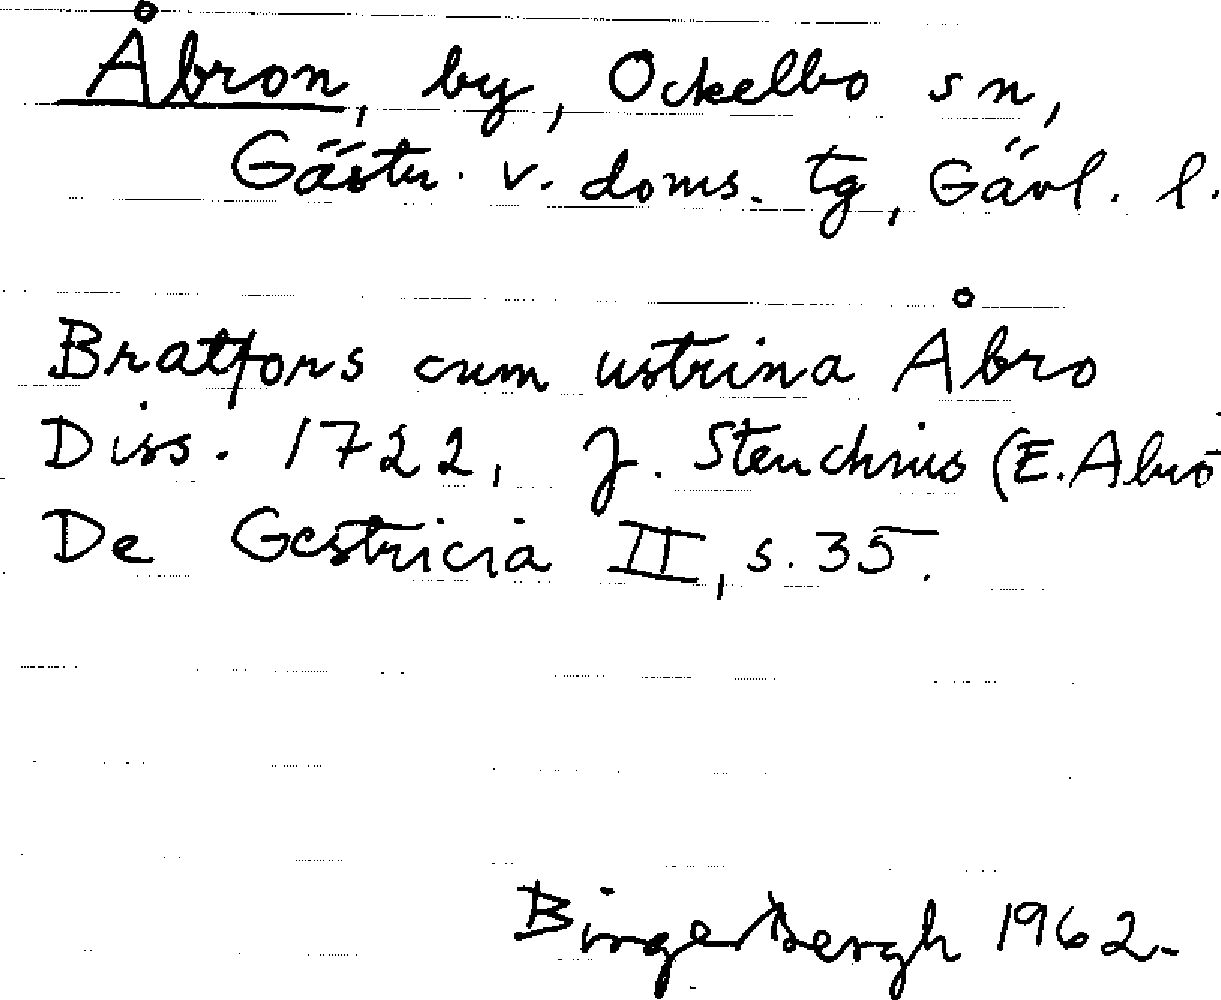 Åbron, by, Ockelbo sn,
Gästr. v. doms. tg, Gävl. l.
Bratfors cum ustrina Åbro
Diss. 1722, J. Stenchrus (E. Alvo
De Gestricia II, s. 35.
Birger Bergh 1962.